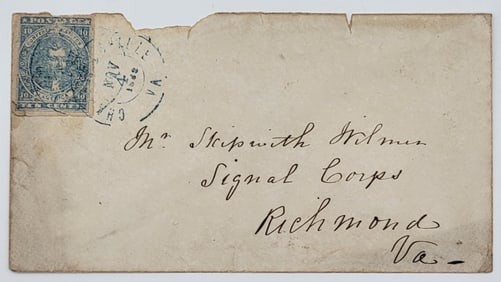 POSTAGE
10 10
TEN CENTS
NOV
4
1862
VA
Mr Skipwith Wilmer
Signal Corps
Richmond
Va.